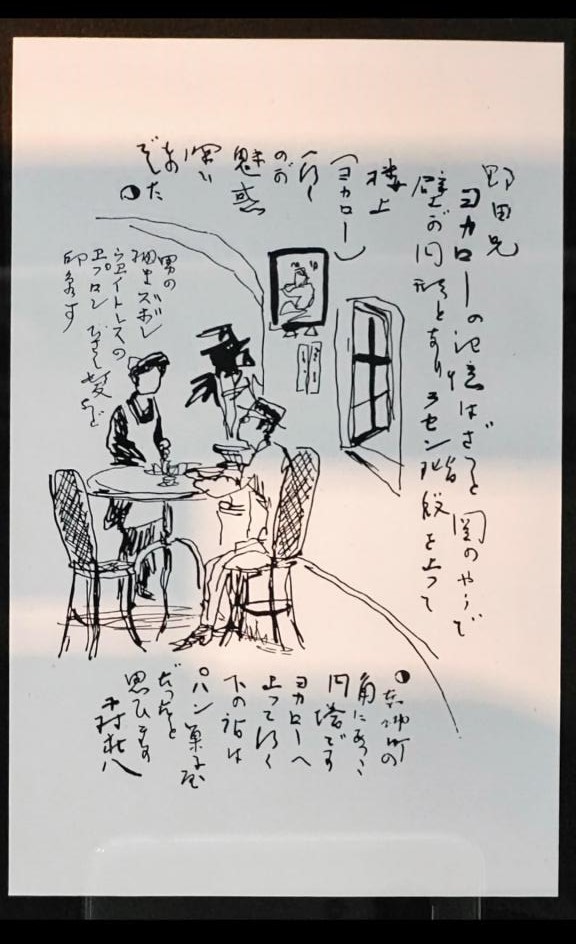 野田兄
ヨカローの記憶はざっと図のやうで
壁が円形となりラセン階段を上って
楼上
（ヨカロー）
へ行く
のが
魅惑
深い
もの
でした
男の
細いズボン
ウエイトレスの
エプロン ひさし髪など
印象です
角にあった
円塔です
ヨカローへ
上って行く
下の話は
パン菓子屋
だったと
思ひます
木村荘八